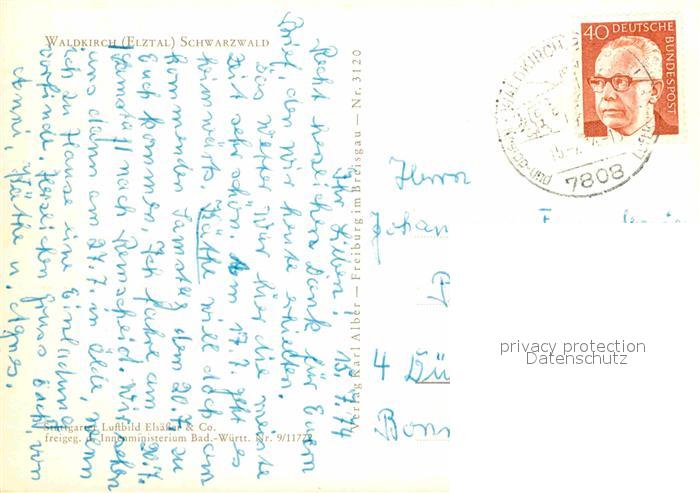 WALDKIRCH (ELZTAL) SCHWARZWALD
15.7.74
Ihr Lieben!
Recht herzlichen Dank für Euern
Brief, den wir heute erhielten.
Das Wetter war hier die meiste
Zeit sehr schön. Am 17.7. geht es
heimwärts. Käthe will doch am
kommenden Samstag, dem 20.7. zu
Euch kommen. Ich fahre am 20.7.
(Samstag) nach Remscheid. Wir sehen
uns dann am 27.7. in Olde, wenn
ich zu Hause eine Einladung
vorfinde. Herzlichen Gruss Euch von
Anni, Käthe u. Agnes.
Stuttgarter Luftbild Elsäßer & Co.
freigeg. d. Innenministerium Bad.-Württ. Nr. 9/11772
Verlag Karl Alber — Freiburg im Breisgau — Nr. 3120
40 DEUTSCHE
BUNDESPOST
WALDKIRCH
7808
Herrn
Johan
4 Dü
Bonn
privacy protection
Datenschutz